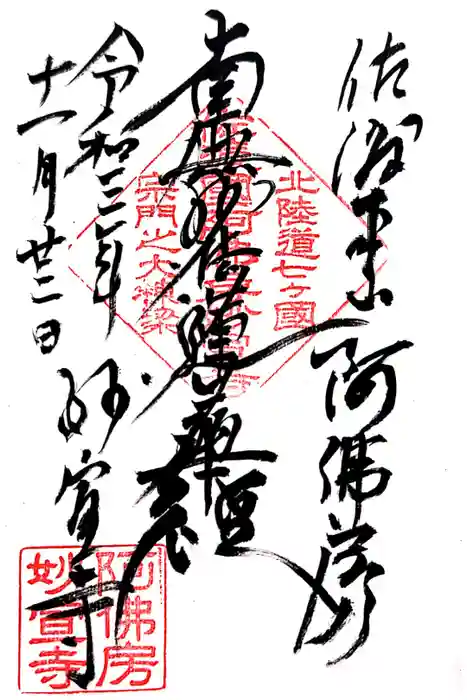 佐渡本山 阿佛房
南無妙法蓮華経
令和三年
十一月廿二日
妙宣寺
北陸道七ヶ國
宗門之大棟梁
阿佛房
妙宣寺